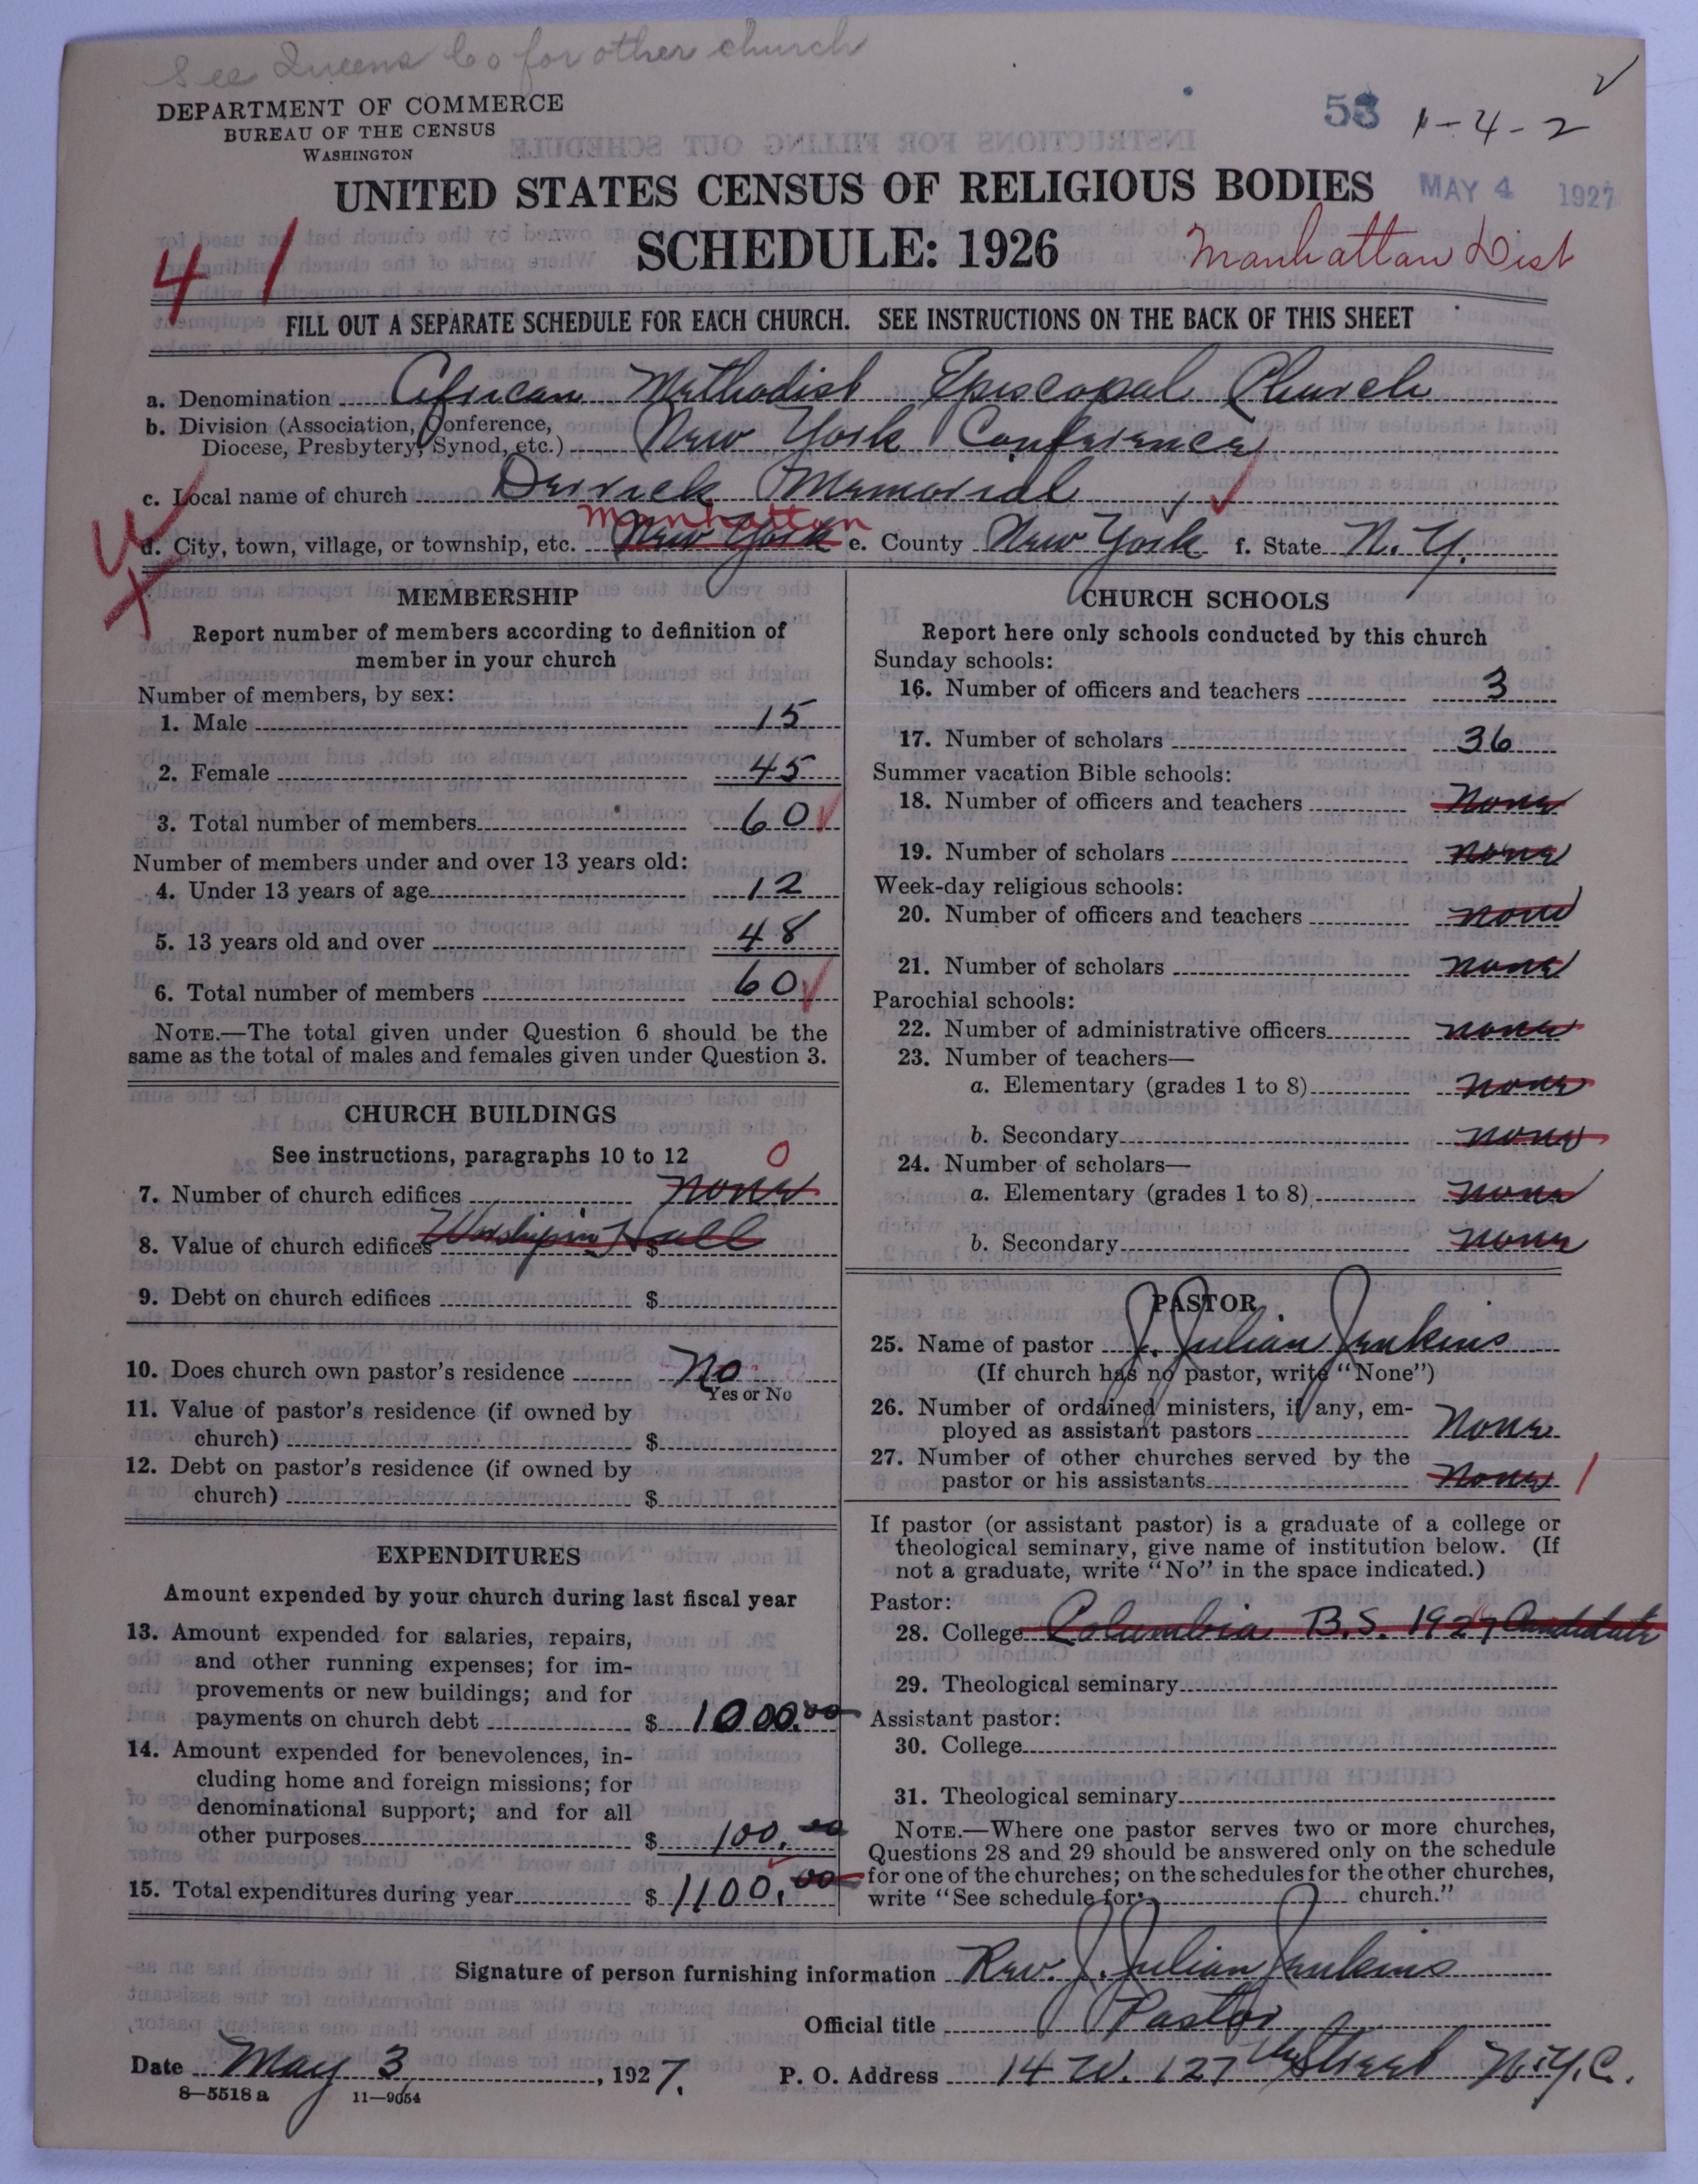 See Queens Co for other church
DEPARTMENT OF COMMERCE
BUREAU OF THE CENSUS
WASHINGTON
53 1-4-2
UNITED STATES CENSUS OF RELIGIOUS BODIES
MAY 4 1927
SCHEDULE: 1926
Manhattan Dist
41
FILL OUT A SEPARATE SCHEDULE FOR EACH CHURCH. SEE INSTRUCTIONS ON THE BACK OF THIS SHEET
a. Denomination African Methodist Episcopal Church
b. Division (Association, Conference, Diocese, Presbytery, Synod, etc.) New York Conference
c. Local name of church Derrick Memorial
Manhattan
d. City, town, village, or township, etc. New York e. County New York f. State N.Y.
MEMBERSHIP
Report number of members according to definition of
member in your church
Number of members, by sex:
1. Male 15
2. Female 45
3. Total number of members 60
Number of members under and over 13 years old:
4. Under 13 years of age 12
5. 13 years old and over 48
6. Total number of members 60
NOTE.—The total given under Question 6 should be the
same as the total of males and females given under Question 3.
CHURCH BUILDINGS
See instructions, paragraphs 10 to 12 0
7. Number of church edifices none
8. Value of church edifices $ Worship in Hall
9. Debt on church edifices $
10. Does church own pastor's residence No
Yes or No
11. Value of pastor's residence (if owned by
church) $
12. Debt on pastor's residence (if owned by
church) $
EXPENDITURES
Amount expended by your church during last fiscal year
13. Amount expended for salaries, repairs,
and other running expenses; for im-
provements or new buildings; and for
payments on church debt $ 1000.00
14. Amount expended for benevolences, in-
cluding home and foreign missions; for
denominational support; and for all
other purposes $ 100.00
15. Total expenditures during year $ 1100.00
CHURCH SCHOOLS
Report here only schools conducted by this church
Sunday schools:
16. Number of officers and teachers 3
17. Number of scholars 36
Summer vacation Bible schools:
18. Number of officers and teachers None
19. Number of scholars none
Week-day religious schools:
20. Number of officers and teachers none
21. Number of scholars none
Parochial schools:
22. Number of administrative officers none
23. Number of teachers—
a. Elementary (grades 1 to 8) none
b. Secondary none
24. Number of scholars—
a. Elementary (grades 1 to 8) none
b. Secondary none
PASTOR
25. Name of pastor J. Julian Jenkins
(If church has no pastor, write "None")
26. Number of ordained ministers, if any, em-
ployed as assistant pastors None
27. Number of other churches served by the
pastor or his assistants None 1
If pastor (or assistant pastor) is a graduate of a college or
theological seminary, give name of institution below. (If
not a graduate, write "No" in the space indicated.)
Pastor:
28. College Columbia B.S. 1927 Candidate
29. Theological seminary
Assistant pastor:
30. College
31. Theological seminary
NOTE.—Where one pastor serves two or more churches,
Questions 28 and 29 should be answered only on the schedule
for one of the churches; on the schedules for the other churches,
write "See schedule for church."
Signature of person furnishing information Rev. J. Julian Jenkins
Official title Pastor
Date May 3, 1927. P. O. Address 14 W. 127 Street N.Y.C.
8—5518a 11—9054